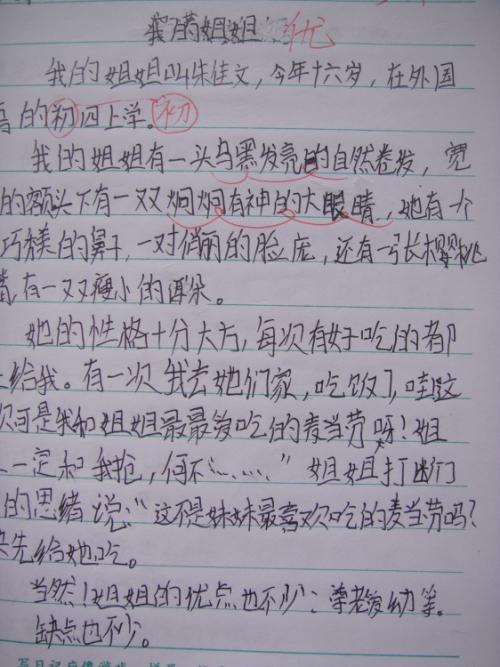 我的姐姐 优
我的姐姐叫朱佳文，今年十六岁，在外国
的初四上学。初
我的姐姐有一头乌黑发亮的自然卷发，宽
的额头下有一双炯炯有神的大眼睛，她有一个
巧美的鼻子，一对俏丽的脸庞，还有一张樱桃
有一双瘦小的耳朵。
她的性格十分大方，每次有好吃的都
给我。有一次我去她们家，吃饭了，哇这
次可是我和姐姐最最爱吃的麦当劳呀！姐
一定和我抢，何不……”姐姐打断了
的思绪说：“这不是妹妹最喜欢吃的麦当劳吗？
快先给她吃。
当然！姐姐的优点也不少：尊老爱幼等。
缺点也不少。